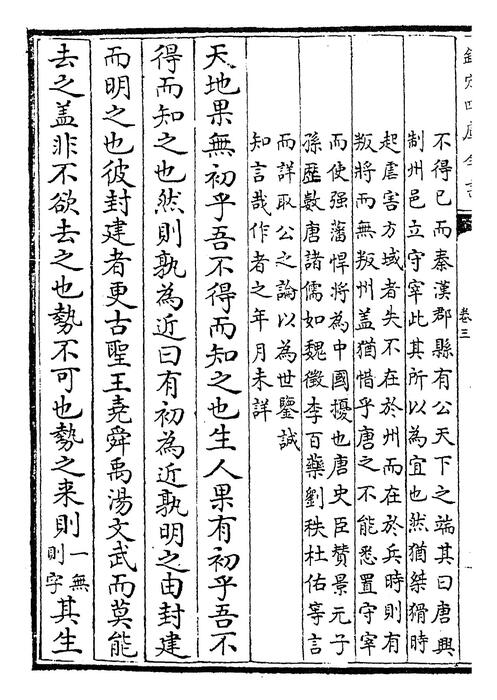 欽定四庫全書
卷三
不得已而秦漢郡縣有公天下之端其曰唐興
制州邑立守宰此其所以為宜也然猶桀猾時
起虐害方域者失不在於州而在於兵時則有
叛將而無叛州盖猶惜乎唐之不能悉置守宰
而使强藩悍將為中國擾也唐史臣贊景元子
孫歴數唐諸儒如魏徵李百藥劉秩杜佑等言
而詳取公之論以為世鑒誠
知言哉作者之年月未詳
天地果無初乎吾不得而知之也生人果有初乎吾不
得而知之也然則孰為近曰有初為近孰明之由封建
而明之也彼封建者更古聖王堯舜禹湯文武而莫能
去之盖非不欲去之也勢不可也勢之来則一無則字其生